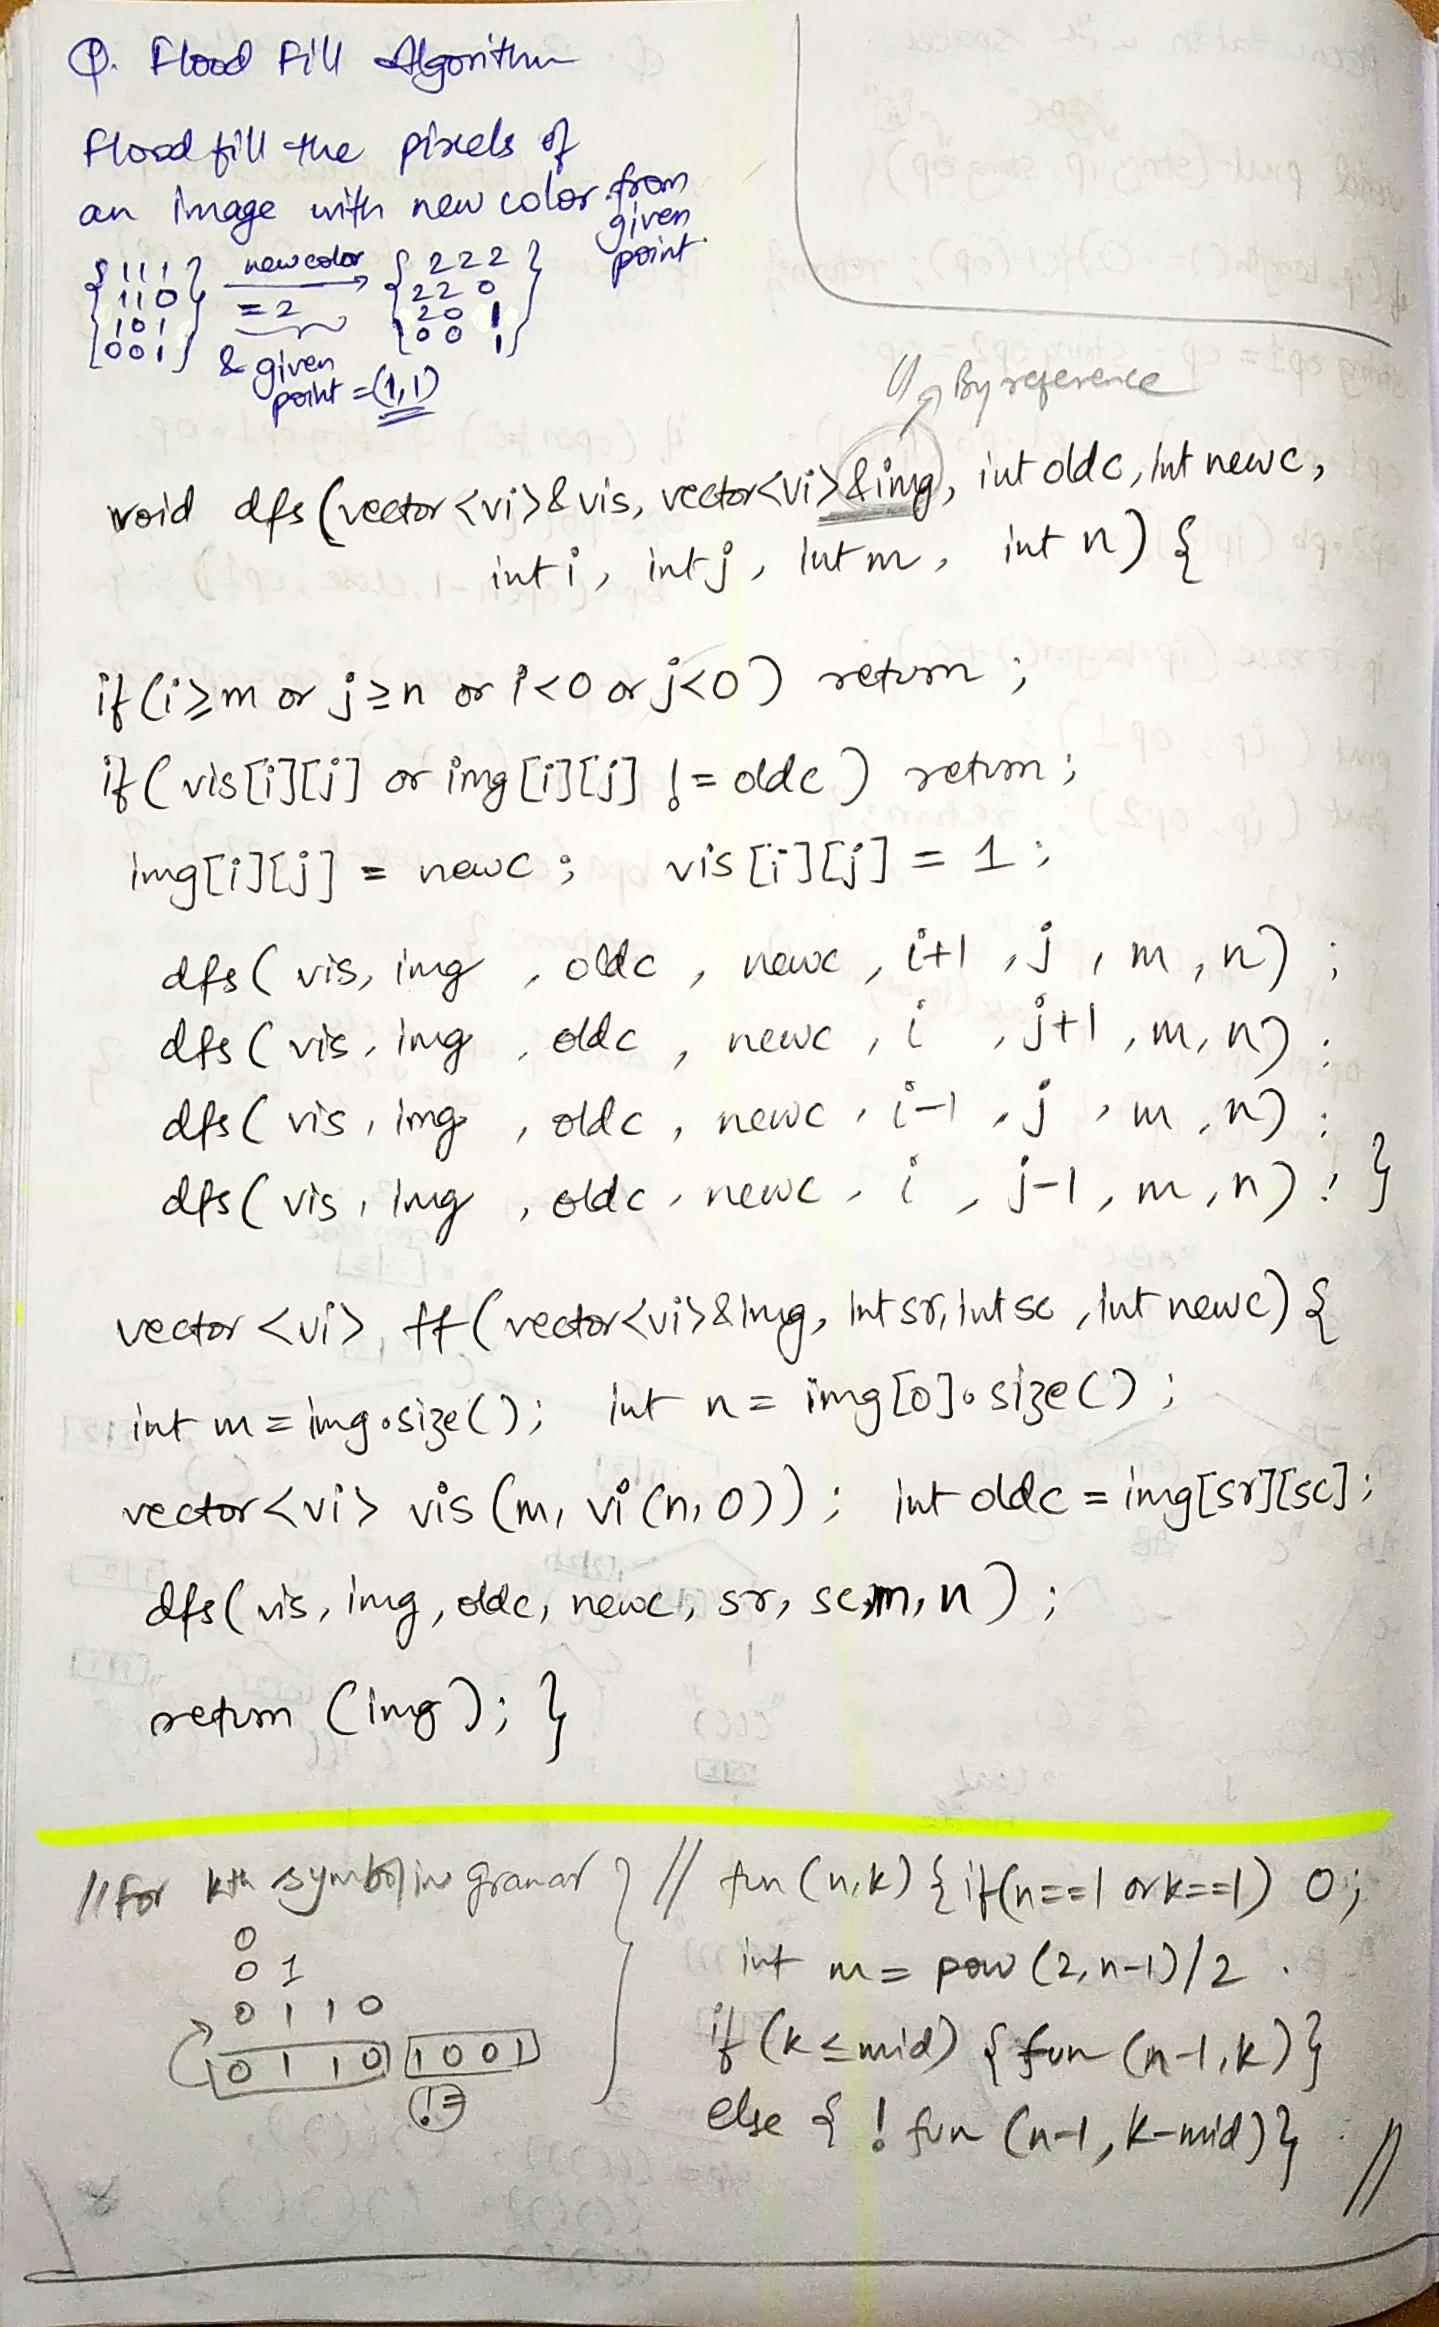 Q. Flood Fill Algorithm
Flood fill the pixels of
an image with new color from
given
point
{ 1 1 1 } new color { 2 2 2 }
1 1 0 = 2 2 2 0
1 0 1 2 0 1
0 0 1 0 0 1
& given
point = (1,1)
By reference
void dfs (vector <vi> & vis, vector<vi> &img, int oldc, int newc,
int i, int j, int m, int n) {
if (i ≥ m or j ≥ n or i < 0 or j < 0) return ;
if ( vis[i][j] or img [i][j] != oldc ) return ;
img[i][j] = newc ; vis [i][j] = 1 ;
dfs ( vis, img , oldc , newc , i+1 , j , m , n) ;
dfs ( vis, img , oldc , newc , i , j+1 , m, n) ;
dfs ( vis, img , oldc , newc , i-1 , j , m , n) ;
dfs ( vis, img , oldc , newc , i , j-1 , m , n) ; }
vector <vi> ff (vector<vi> & img, int sr, int sc , int newc) {
int m = img.size() ; int n = img [0].size () ;
vector <vi> vis (m, vi (n, 0)) ; int oldc = img[sr][sc] ;
dfs ( vis, img, oldc, newc, sr, sc, m, n ) ;
return (img) ; }
// for kth symbol in gramar } // fun (n,k) { if (n==1 or k==1) 0 ;
0
0 1 int m = pow (2, n-1)/2 .
0 1 1 0
0 1 1 0 1 0 0 1 if (k ≤ mid) { fun (n-1, k) }
!= else { ! fun (n-1, k-mid) } //